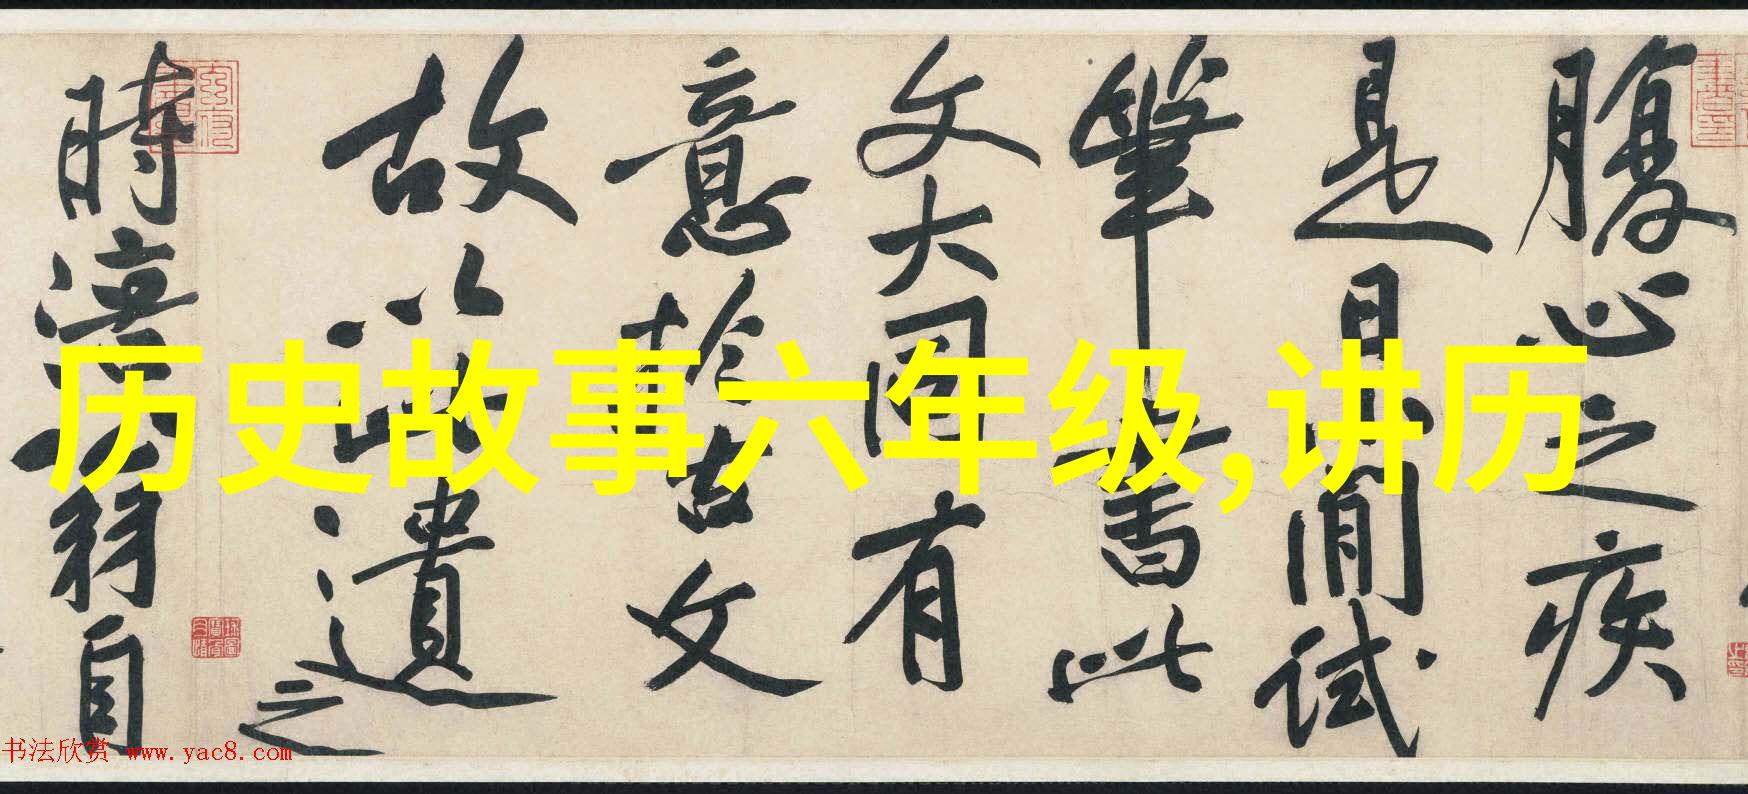 历史故事六年级,讲历
腹心之疾
是日小閒試
筆書此
文大同有
意於古文
故以此遺
之
時涪翁自
书法欣赏 www.yac8.com